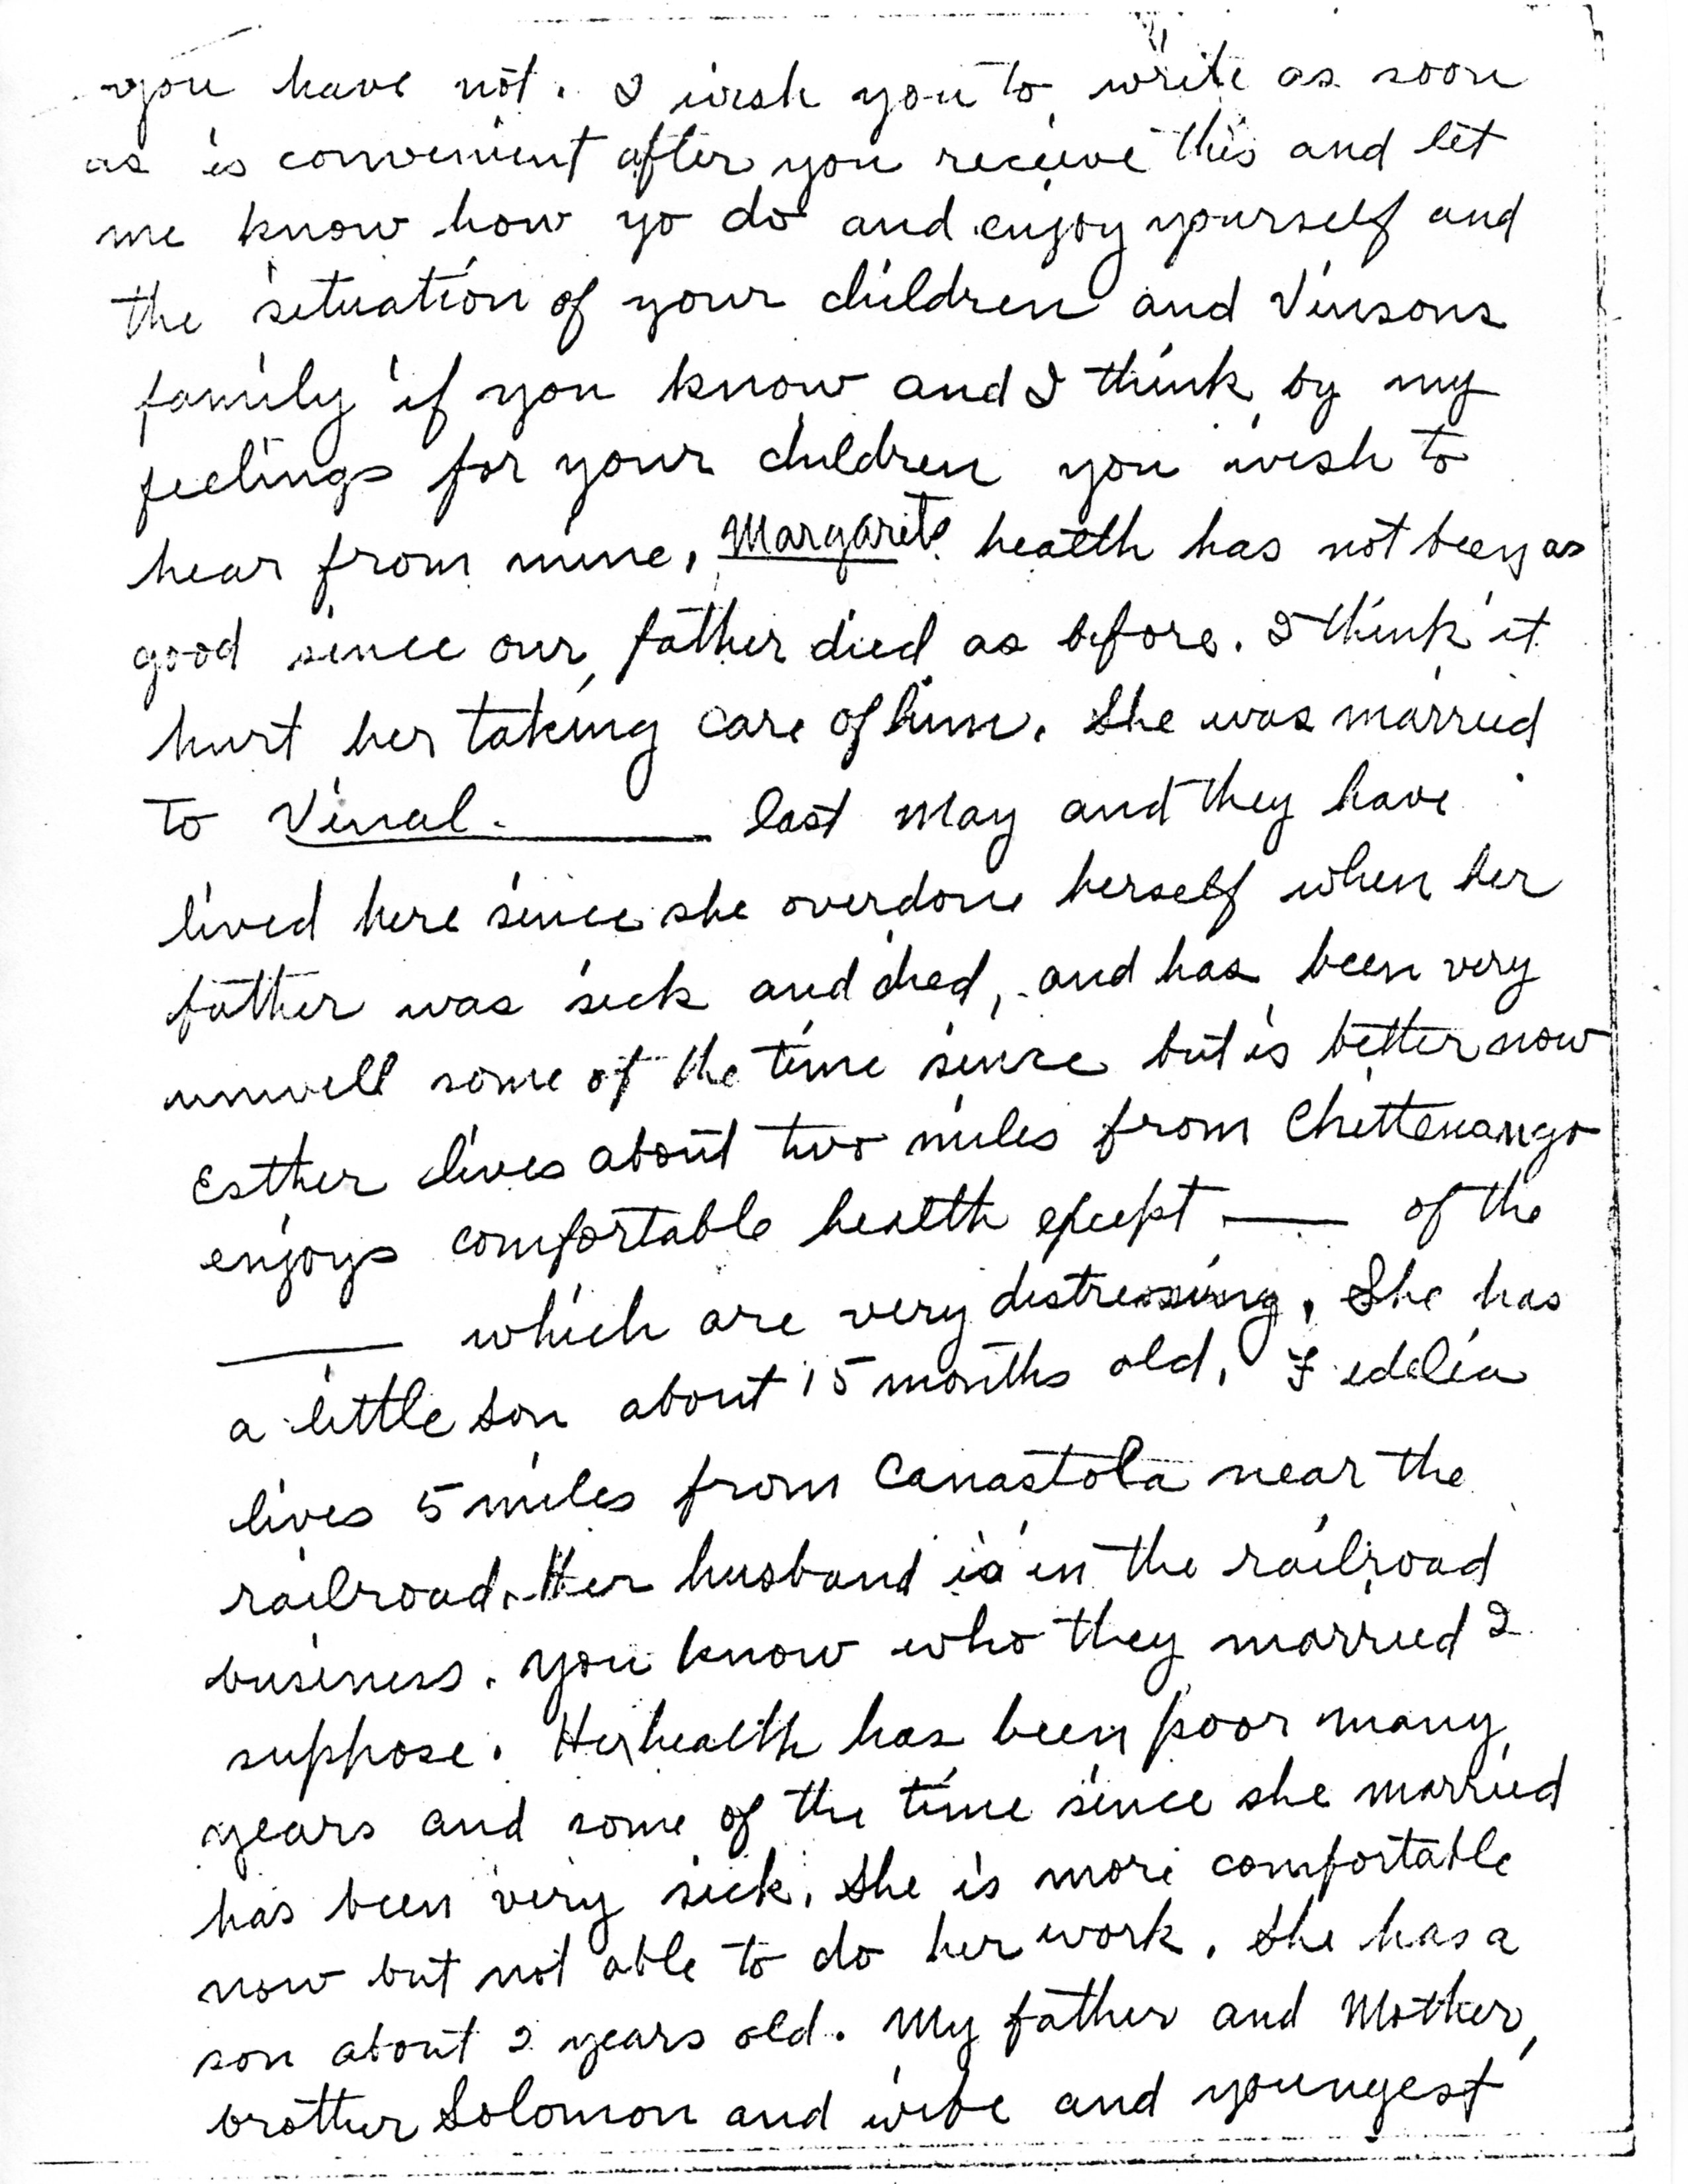 you have not. I wish you to write as soon
as is convenient after you receive this and let
me know how yo do and enjoy yourself and
the situation of your children and Vinsons
family if you know and I think by my
feelings for your children you wish to
hear from mine. Margarets health has not been as
good since our father died as before. I think it
hurt her taking care of him. She was married
to Vinal. ______ last May and they have
lived here since she overdone herself when her
father was sick and died, and has been very
unwell some of the time since but is better now
Esther lives about two miles from Chittenango
enjoys comfortable health except ____ of the
______ which are very distressing. She has
a little son about 15 months old. Fidelia
lives 5 miles from Canastota near the
railroad. Her husband is in the railroad
business. You know who they married I
suppose. Her health has been poor many
years and some of the time since she married
has been very sick. She is more comfortable
now but not able to do her work. She has a
son about 2 years old. My father and Mother,
brother Solomon and wife and youngest